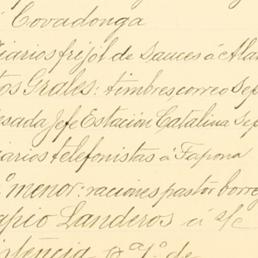 Covadonga
diarios frijol de Sauces á Ala
tos Grales: timbres correo Sep
esada Jefe Estación Catalina Sep
iarios telefonistas á Tapona
º menor: raciones pastor borreg
apio Landeros a s/c
istencia pª 1º de